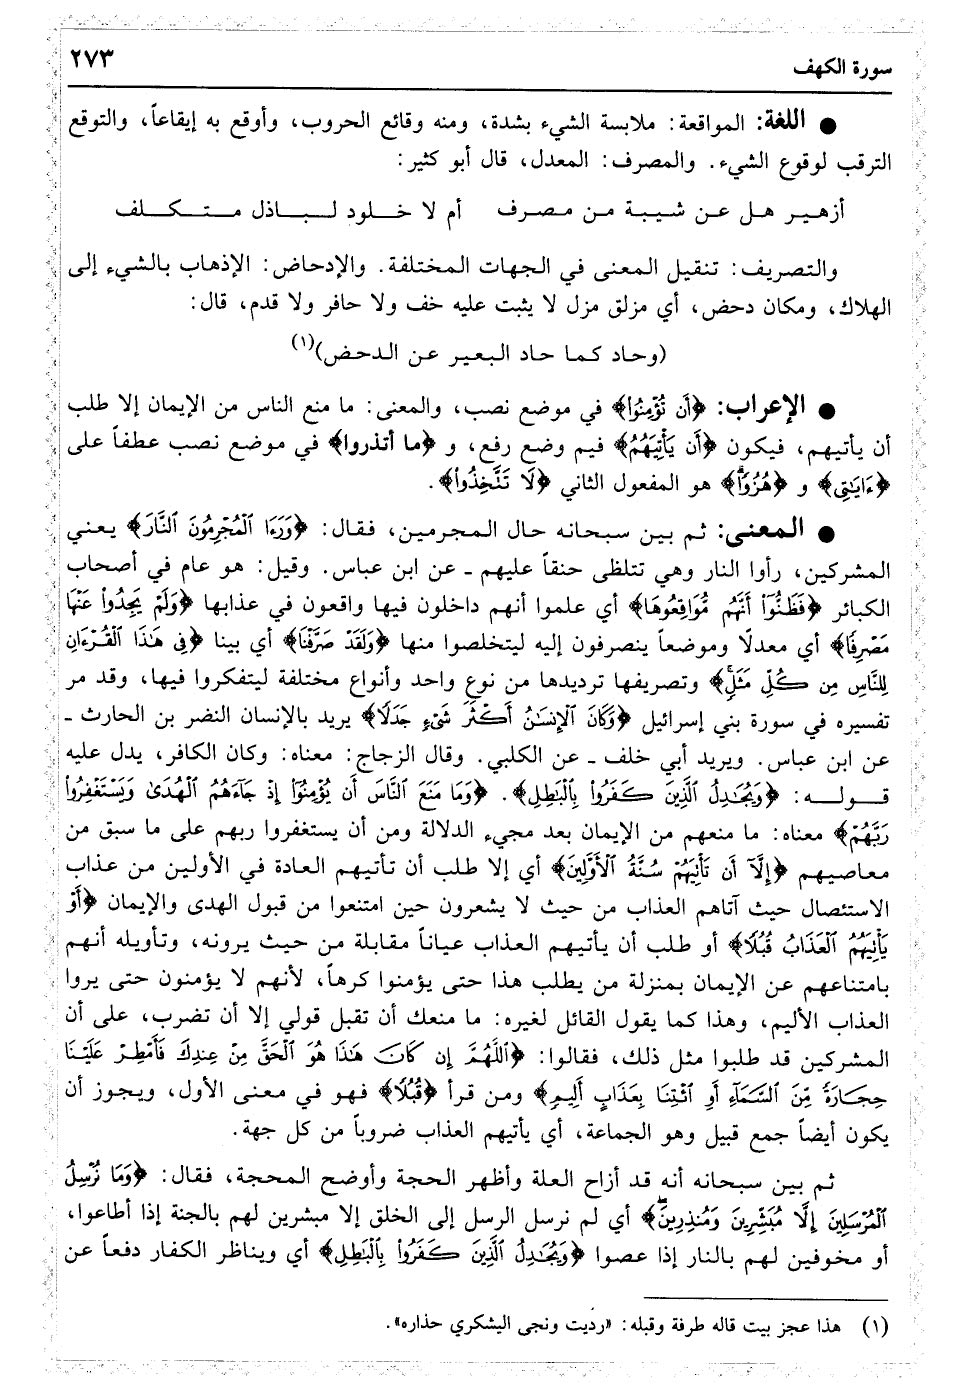 سورة الكهف ٢٧٣
● اللغة: المواقعة: ملابسة الشيء بشدة، ومنه وقائع الحروب، وأوقع به إيقاعاً، والتوقع
الترقب لوقوع الشيء. والمصرف: المعدل، قال أبو كثير:
أزهير هل عن شيبة من مصرف أم لا خلود لباذل متكلف
والتصريف: تنقيل المعنى في الجهات المختلفة. والإدحاض: الإذهاب بالشيء إلى
الهلاك، ومكان دحض، أي مزلق مزل لا يثبت عليه خف ولا حافر ولا قدم، قال:
(وحاد كما حاد البعير عن الدحض)(١)
● الإعراب: ﴿أَن تُؤْمِنُوا﴾ في موضع نصب، والمعنى: ما منع الناس من الإيمان إلا طلب
أن يأتيهم، فيكون ﴿أَن يَأْتِيَهُمُ﴾ فيم وضع رفع، و ﴿ما أتذروا﴾ في موضع نصب عطفاً على
﴿ءَايَٰتِي﴾ و ﴿هُزُوًا﴾ هو المفعول الثاني ﴿لَا تَتَّخِذُوا﴾.
● المعنى: ثم بين سبحانه حال المجرمين، فقال: ﴿وَرَءَا ٱلْمُجْرِمُونَ ٱلنَّارَ﴾ يعني
المشركين، رأوا النار وهي تتلظى حنقاً عليهم ـ عن ابن عباس. وقيل: هو عام في أصحاب
الكبائر ﴿فَظَنُّوٓا۟ أَنَّهُم مُّوَاقِعُوهَا﴾ أي علموا أنهم داخلون فيها واقعون في عذابها ﴿وَلَمْ يَجِدُوا۟ عَنْهَا
مَصْرِفًا﴾ أي معدلًا وموضعاً ينصرفون إليه ليتخلصوا منها ﴿وَلَقَدْ صَرَّفْنَا﴾ أي بينا ﴿فِي هَٰذَا ٱلْقُرْءَانِ
لِلنَّاسِ مِن كُلِّ مَثَلٍ﴾ وتصريفها ترديدها من نوع واحد وأنواع مختلفة ليتفكروا فيها، وقد مر
تفسيره في سورة بني إسرائيل ﴿وَكَانَ ٱلْإِنسَٰنُ أَكْثَرَ شَيْءٍ جَدَلًا﴾ يريد بالإنسان النضر بن الحارث ـ
عن ابن عباس. ويريد أبي خلف ـ عن الكلبي. وقال الزجاج: معناه: وكان الكافر، يدل عليه
قوله: ﴿وَيُجَٰدِلُ ٱلَّذِينَ كَفَرُوا۟ بِٱلْبَٰطِلِ﴾. ﴿وَمَا مَنَعَ ٱلنَّاسَ أَن يُؤْمِنُوٓا۟ إِذْ جَآءَهُمُ ٱلْهُدَىٰ وَيَسْتَغْفِرُوا۟
رَبَّهُمْ﴾ معناه: ما منعهم من الإيمان بعد مجيء الدلالة ومن أن يستغفروا ربهم على ما سبق من
معاصيهم ﴿إِلَّآ أَن تَأْتِيَهُمْ سُنَّةُ ٱلْأَوَّلِينَ﴾ أي إلا طلب أن تأتيهم العادة في الأولين من عذاب
الاستئصال حيث آتاهم العذاب من حيث لا يشعرون حين امتنعوا من قبول الهدى والإيمان ﴿أَوْ
يَأْتِيَهُمُ ٱلْعَذَابُ قُبُلًا﴾ أو طلب أن يأتيهم العذاب عياناً مقابلة من حيث يرونه، وتأويله أنهم
بامتناعهم عن الإيمان بمنزلة من يطلب هذا حتى يؤمنوا كرهاً، لأنهم لا يؤمنون حتى يروا
العذاب الأليم، وهذا كما يقول القائل لغيره: ما منعك أن تقبل قولي إلا أن تضرب، على أن
المشركين قد طلبوا مثل ذلك، فقالوا: ﴿ٱللَّهُمَّ إِن كَانَ هَٰذَا هُوَ ٱلْحَقَّ مِنْ عِندِكَ فَأَمْطِرْ عَلَيْنَا
حِجَارَةً مِّنَ ٱلسَّمَآءِ أَوِ ٱئْتِنَا بِعَذَابٍ أَلِيمٍ﴾ ومن قرأ ﴿قُبُلًا﴾ فهو في معنى الأول، ويجوز أن
يكون أيضاً جمع قبيل وهو الجماعة، أي يأتيهم العذاب ضروباً من كل جهة.
ثم بين سبحانه أنه قد أزاح العلة وأظهر الحجة وأوضح المحجة، فقال: ﴿وَمَا نُرْسِلُ
ٱلْمُرْسَلِينَ إِلَّا مُبَشِّرِينَ وَمُنذِرِينَ﴾ أي لم نرسل الرسل إلى الخلق إلا مبشرين لهم بالجنة إذا أطاعوا،
أو مخوفين لهم بالنار إذا عصوا ﴿وَيُجَٰدِلُ ٱلَّذِينَ كَفَرُوا۟ بِٱلْبَٰطِلِ﴾ أي ويناظر الكفار دفعاً عن
(١) هذا عجز بيت قاله طرفة وقبله: «رديت ونجى اليشكري حذاره».